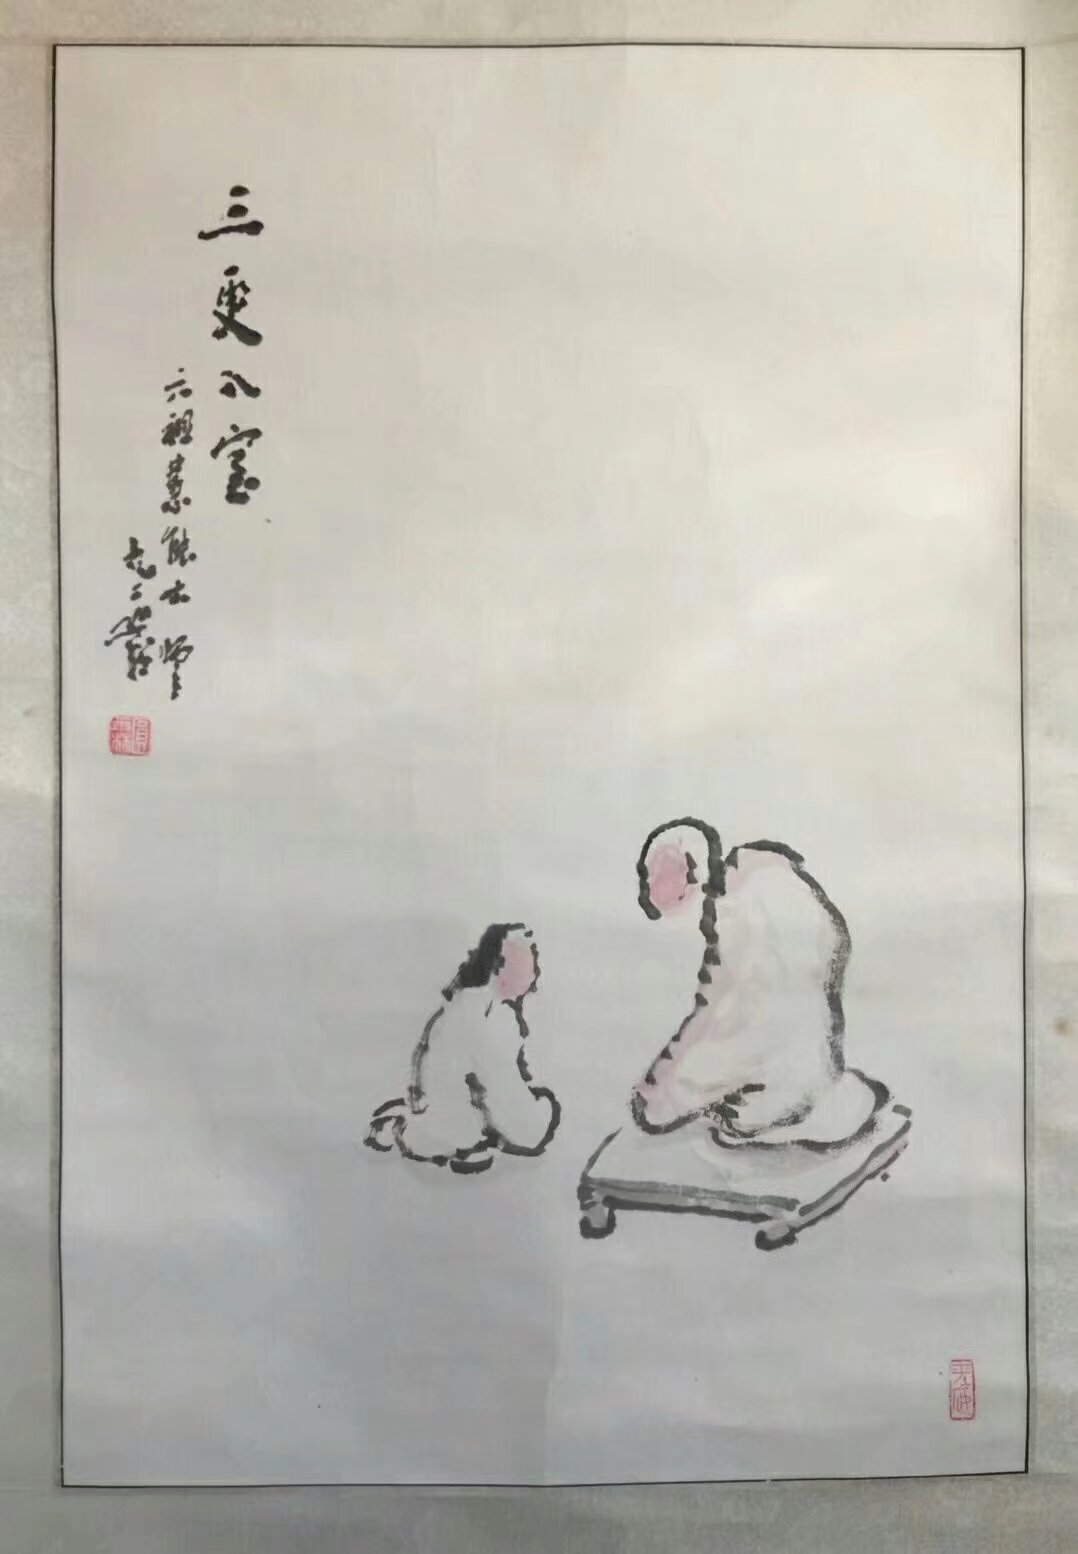 三更入室
六祖慧能大师